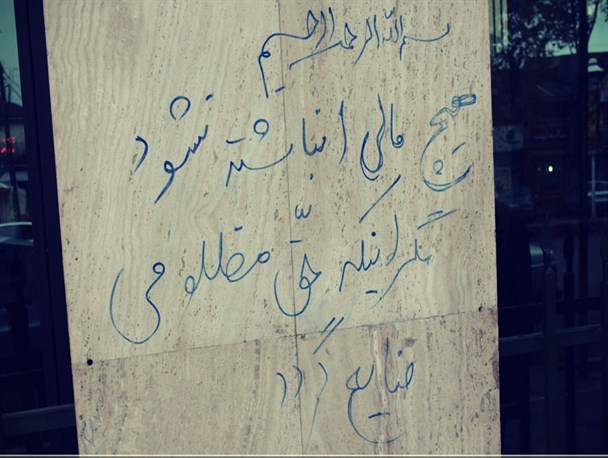 بسم الله الرحمن الرحیم
هیچ مالی انباشته نشود
مگر اینکه حقّ مظلومی
ضایع گردد